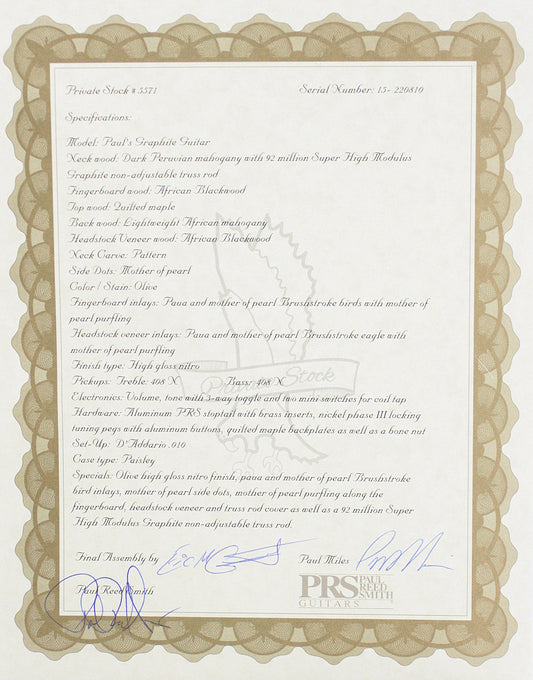 Private Stock # 5571 Serial Number: 15- 220810
Specifications:
Model: Paul's Graphite Guitar
Neck wood: Dark Peruvian mahogany with 92 million Super High Modulus
Graphite non-adjustable truss rod
Fingerboard wood: African Blackwood
Top wood: Quilted maple
Back wood: Lightweight African mahogany
Headstock Veneer wood: African Blackwood
Neck Carve: Pattern
Side Dots: Mother of pearl
Color / Stain: Olive
Fingerboard inlays: Paua and mother of pearl Brushstroke birds with mother of
pearl purfling
Headstock veneer inlays: Paua and mother of pearl Brushstroke eagle with
mother of pearl purfling
Finish type: High gloss nitro
Private Stock
Pickups: Treble: 408 N Bass: 408 N
Electronics: Volume, tone with 3-way toggle and two mini switches for coil tap
Hardware: Aluminum PRS stoptail with brass inserts, nickel phase III locking
tuning pegs with aluminum buttons, quilted maple backplates as well as a bone nut
Set-Up: D'Addario .010
Case type: Paisley
Specials: Olive high gloss nitro finish, paua and mother of pearl Brushstroke
bird inlays, mother of pearl side dots, mother of pearl purfling along the
fingerboard, headstock veneer and truss rod cover as well as a 92 million Super
High Modulus Graphite non-adjustable truss rod.
Final Assembly by Paul Miles
Paul Reed Smith
PRS PAUL REED SMITH
GUITARS